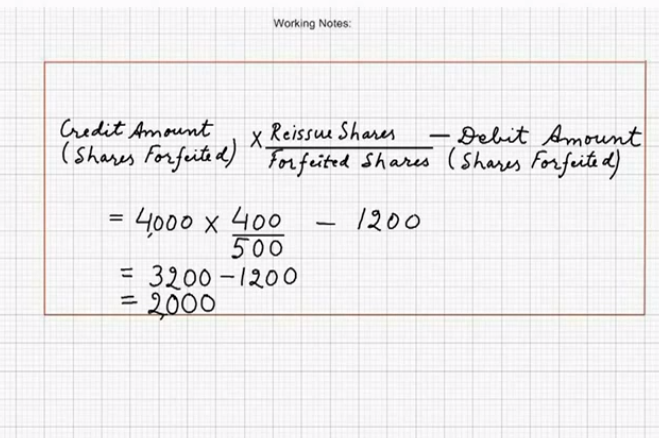 Working Notes:
Credit Amount (Shares Forfeited) × Reissue Shares / Forfeited Shares — Debit Amount (Shares Forfeited)
= 4,000 × 400 / 500 — 1200
= 3200 – 1200
= 2,000